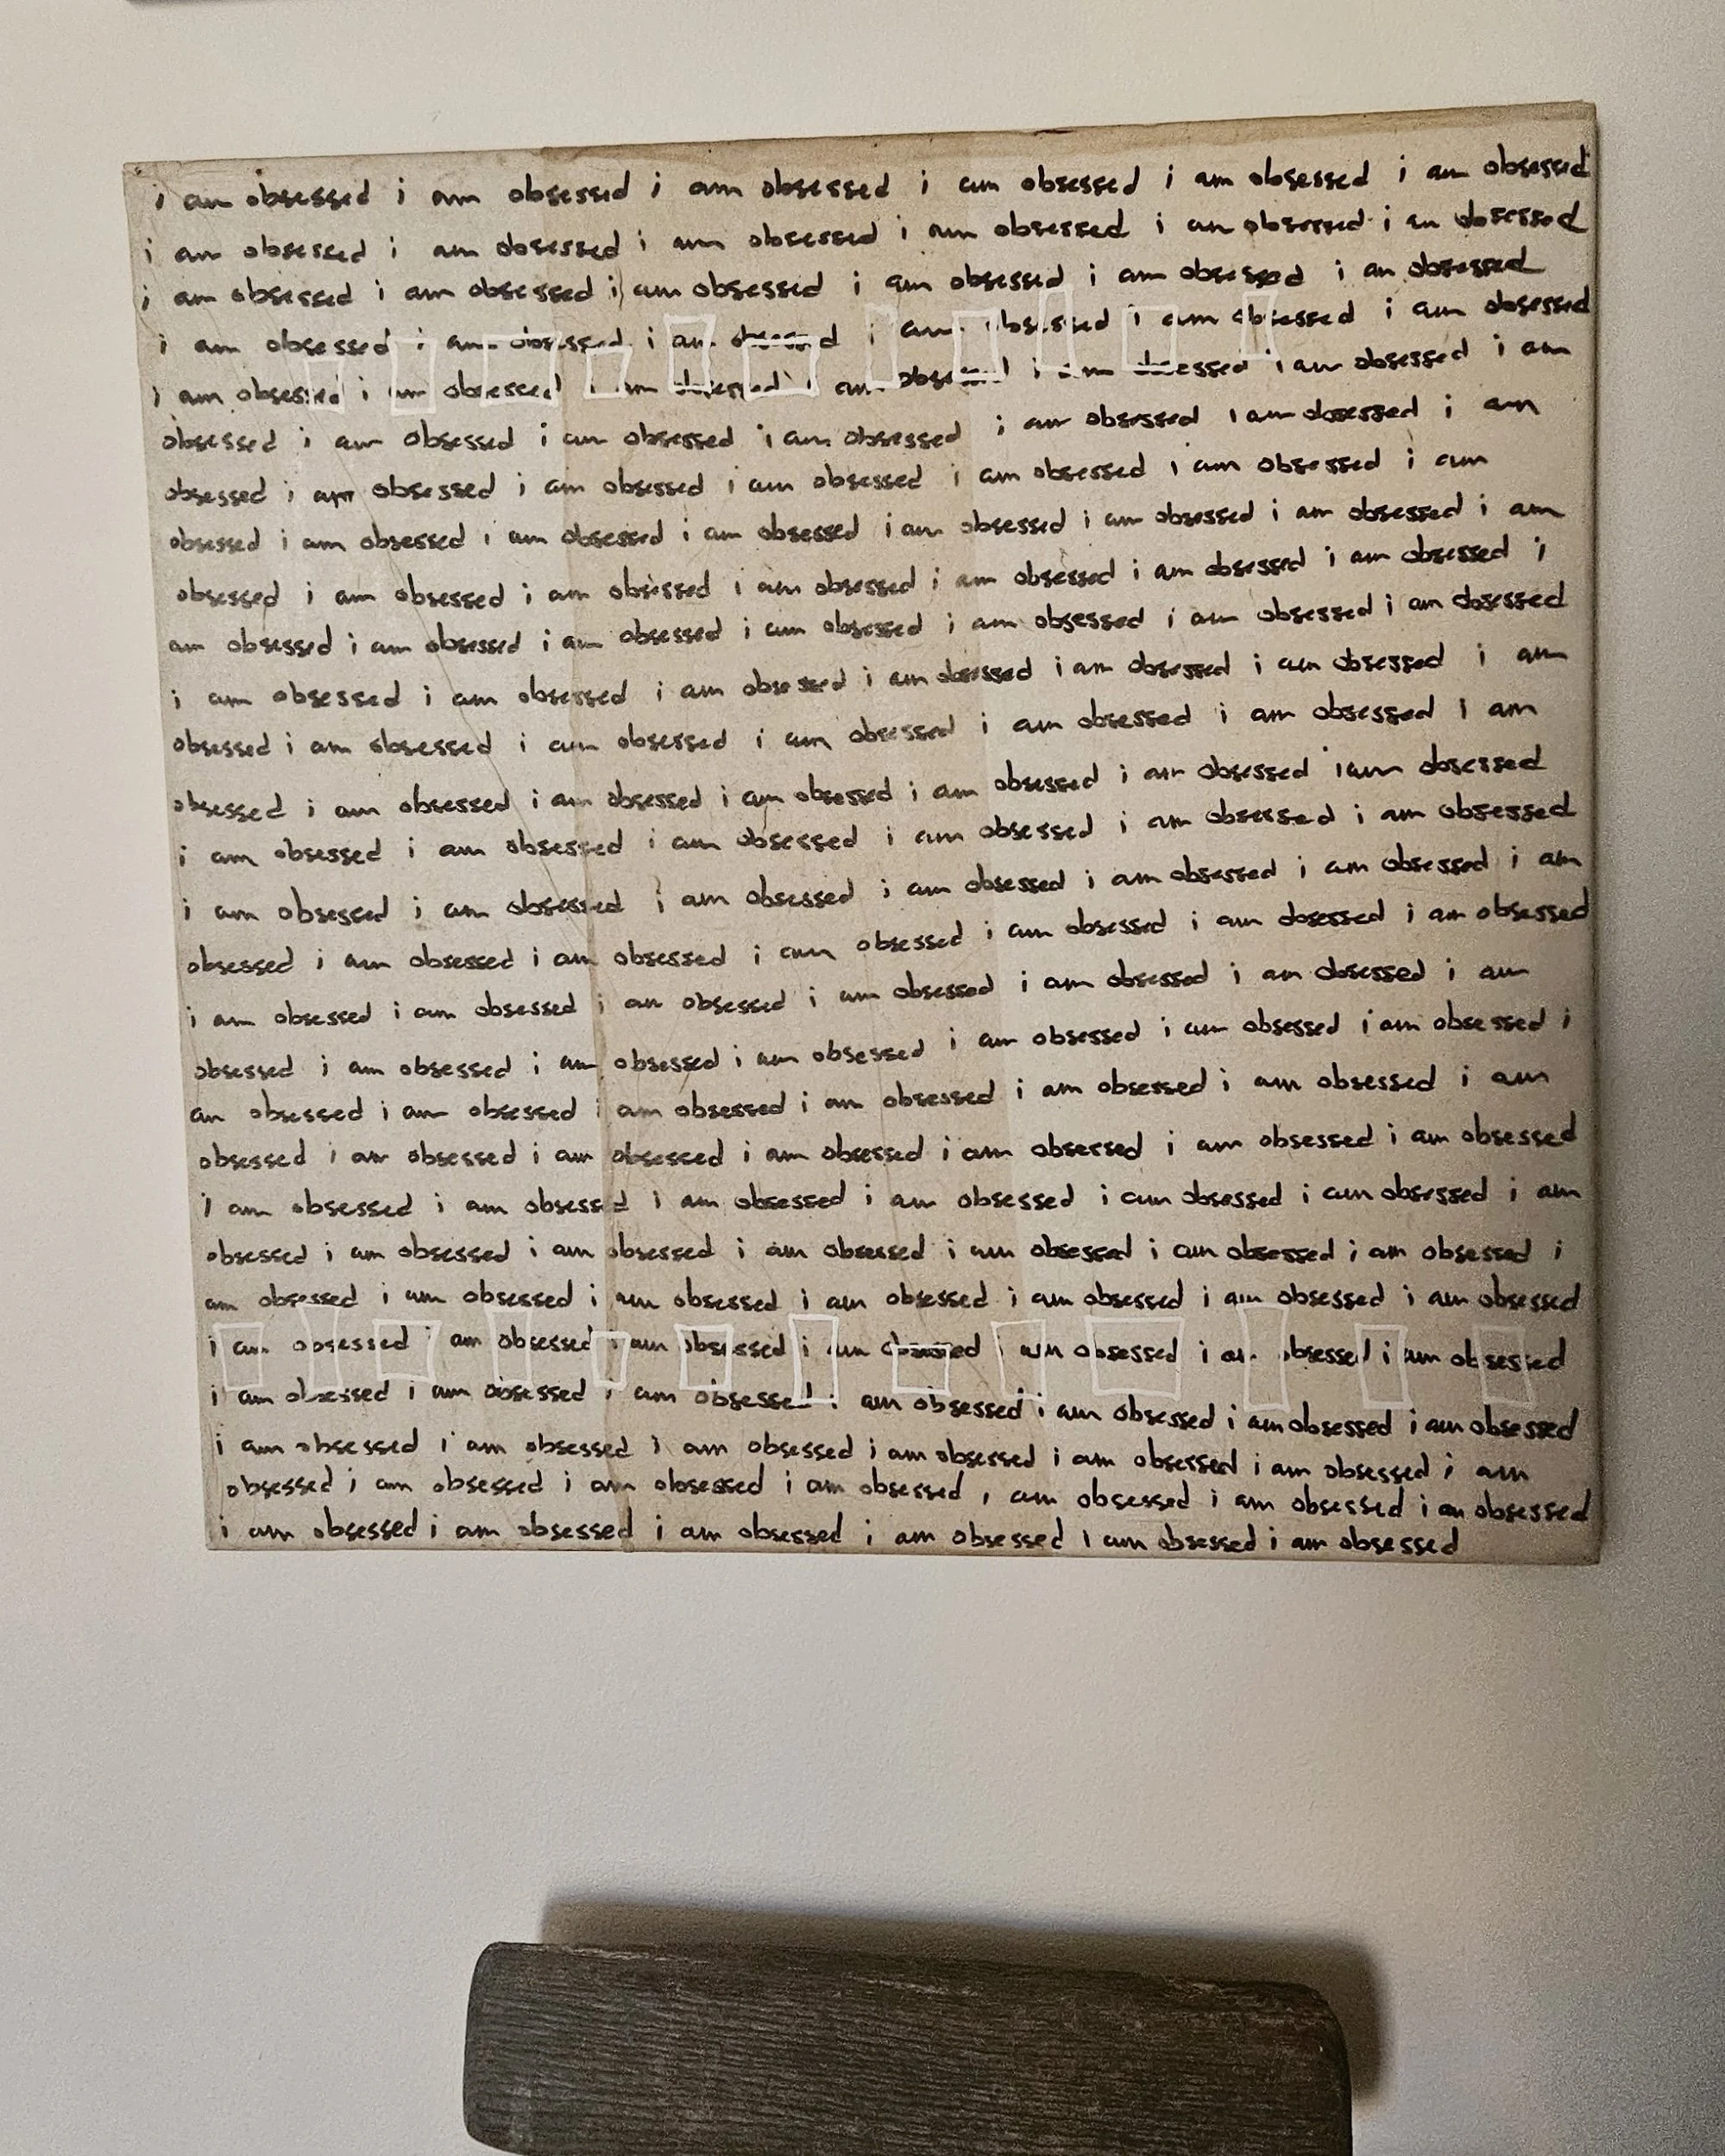 i am obsessed i am obsessed i am obsessed i am obsessed i am obsessed i am obsessed
i am obsessed i am obsessed i am obsessed i am obsessed i am obsessed i am obsessed
i am obsessed i am obsessed i am obsessed i am obsessed i am obsessed i am obsessed
i am obsessed i am obsessed i am obsessed i am obsessed i am obsessed i am obsessed
i am obsessed i am obsessed i am obsessed i am obsessed i am obsessed i am obsessed i am
obsessed i am obsessed i am obsessed i am obsessed i am obsessed i am obsessed i am
obsessed i am obsessed i am obsessed i am obsessed i am obsessed i am obsessed i am
obsessed i am obsessed i am obsessed i am obsessed i am obsessed i am obsessed i am obsessed i am
obsessed i am obsessed i am obsessed i am obsessed i am obsessed i am obsessed i am obsessed i
am obsessed i am obsessed i am obsessed i am obsessed i am obsessed i am obsessed i am obsessed
i am obsessed i am obsessed i am obsessed i am obsessed i am obsessed i am obsessed i am
obsessed i am obsessed i am obsessed i am obsessed i am obsessed i am obsessed i am
obsessed i am obsessed i am obsessed i am obsessed i am obsessed i am obsessed i am obsessed
i am obsessed i am obsessed i am obsessed i am obsessed i am obsessed i am obsessed
i am obsessed i am obsessed i am obsessed i am obsessed i am obsessed i am obsessed i am
obsessed i am obsessed i am obsessed i am obsessed i am obsessed i am obsessed i am obsessed
i am obsessed i am obsessed i am obsessed i am obsessed i am obsessed i am obsessed i am
obsessed i am obsessed i am obsessed i am obsessed i am obsessed i am obsessed i am obsessed i
am obsessed i am obsessed i am obsessed i am obsessed i am obsessed i am obsessed i am
obsessed i am obsessed i am obsessed i am obsessed i am obsessed i am obsessed i am obsessed
i am obsessed i am obsessed i am obsessed i am obsessed i am obsessed i am obsessed i am
obsessed i am obsessed i am obsessed i am obsessed i am obsessed i am obsessed i am obsessed i
am obsessed i am obsessed i am obsessed i am obsessed i am obsessed i am obsessed i am obsessed
i am obsessed i am obsessed i am obsessed i am obsessed i am obsessed i am obsessed i am obsessed
i am obsessed i am obsessed i am obsessed i am obsessed i am obsessed i am obsessed i am obsessed
i am obsessed i am obsessed i am obsessed i am obsessed i am obsessed i am obsessed i am
obsessed i am obsessed i am obsessed i am obsessed i am obsessed i am obsessed i am obsessed
i am obsessed i am obsessed i am obsessed i am obsessed i am obsessed i am obsessed